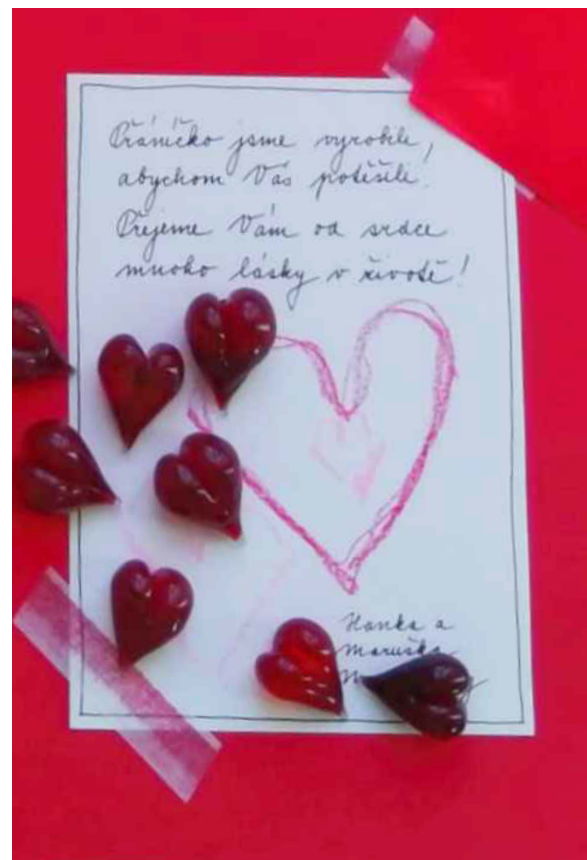 Přáníčko jsme vyrobili,
abychom Vás potěšili.
Přejeme Vám od srdce
mnoho lásky v životě!
Hanka a
Maruška